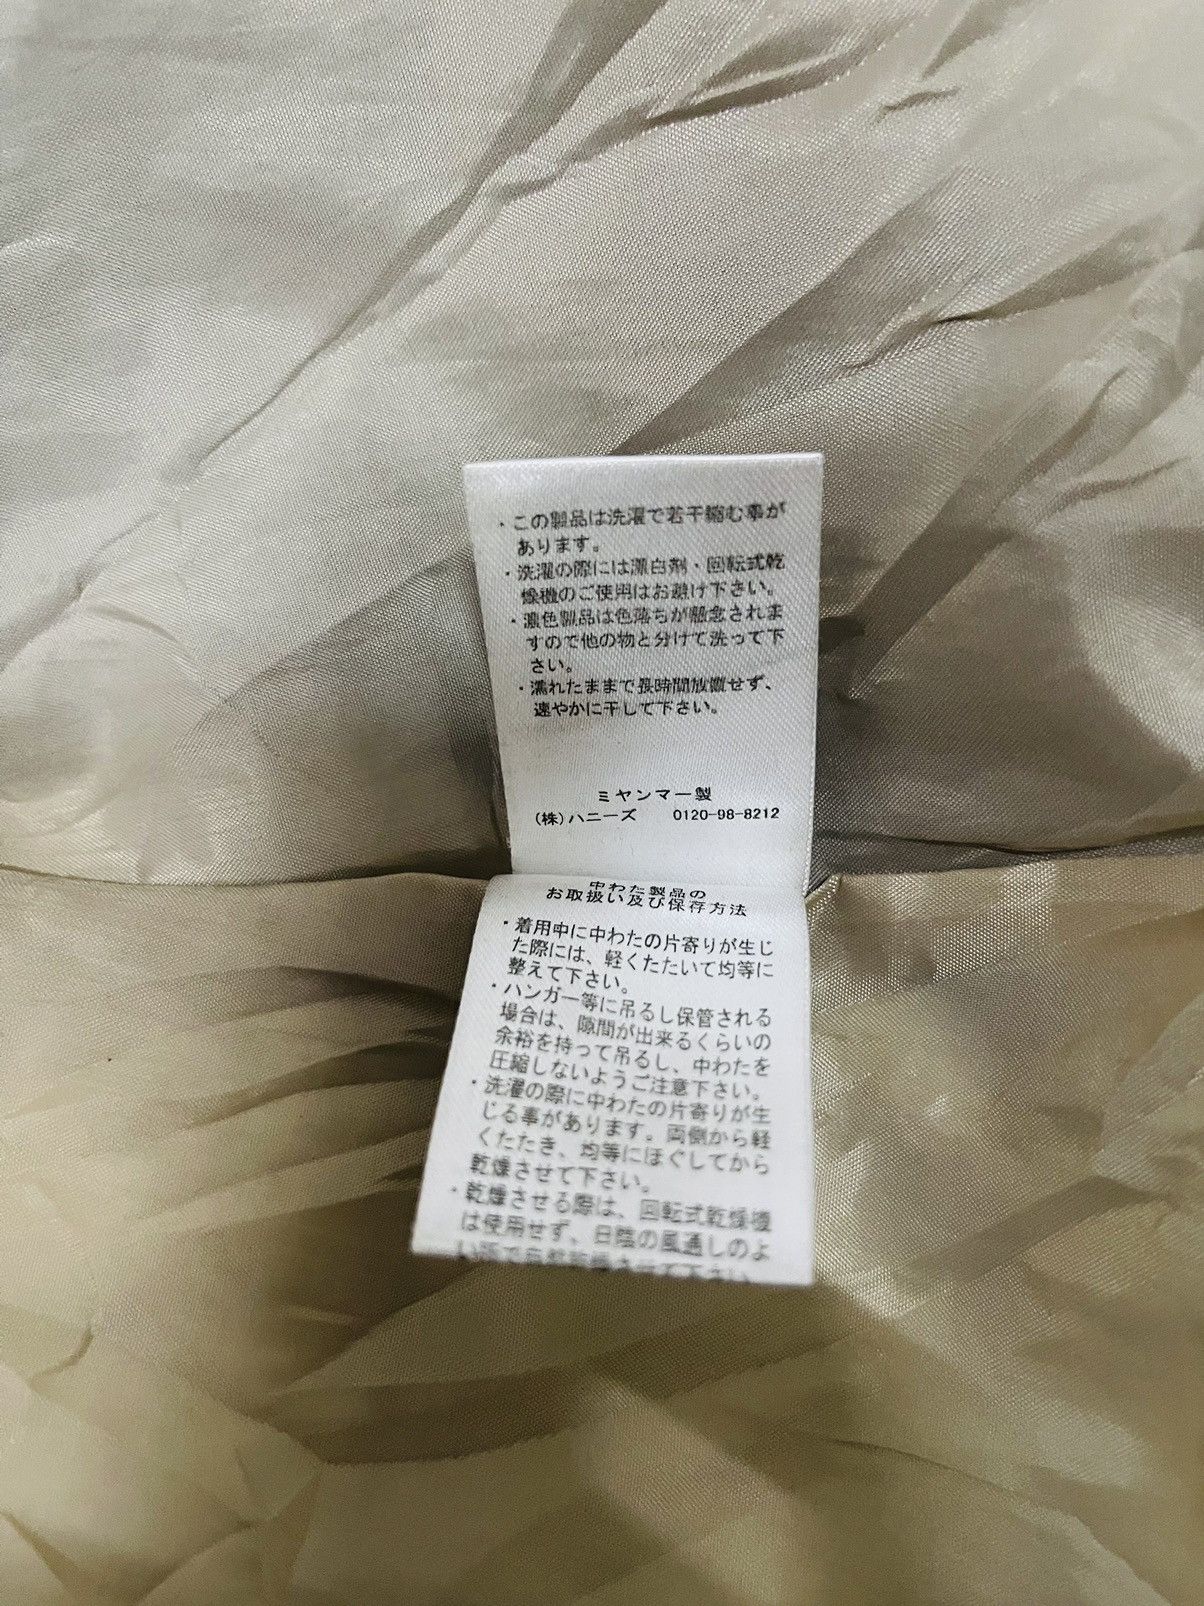 ・この製品は洗濯で若干縮む事が
あります。
・洗濯の際には漂白剤・回転式乾
燥機のご使用はお避け下さい。
・濃色製品は色落ちが懸念されま
すので他の物と分けて洗って下
さい。
・濡れたままで長時間放置せず、
速やかに干して下さい。
ミヤンマー製
(株)ハニーズ 0120-98-8212
中わた製品の
お取扱い及び保存方法
・着用中に中わたの片寄りが生じ
た際には、軽くたたいて均等に
整えて下さい。
・ハンガー等に吊るし保管される
場合は、隙間が出来るくらいの
余裕を持って吊るし、中わたを
圧縮しないようご注意下さい。
・洗濯の際に中わたの片寄りが生
じる事があります。両側から軽
くたたき、均等にほぐしてから
乾燥させて下さい。
・乾燥させる際は、回転式乾燥機
は使用せず、日陰の風通しのよ
い所で自然乾燥させて下さい。